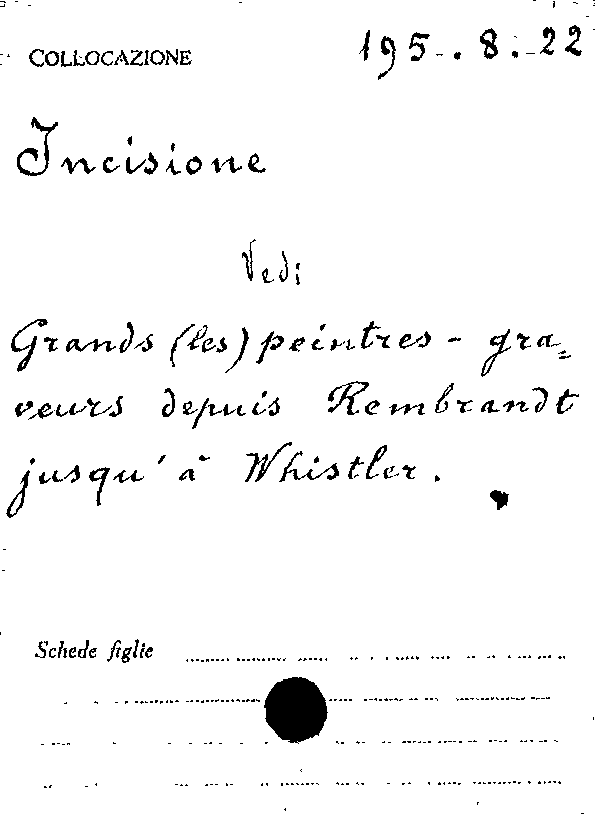 COLLOCAZIONE 195.8.22
Incisione
Vedi
Grands (les) peintres - gra=
veurs depuis Rembrandt
jusqu'à Whistler.
Schede figlie